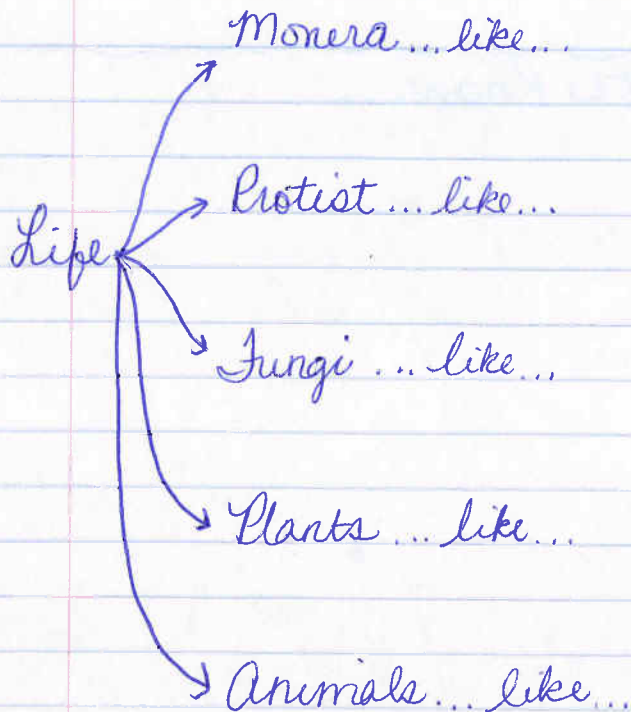 Monera ... like...
Protist ... like...
Life
Fungi ... like...
Plants ... like...
Animals ... like...